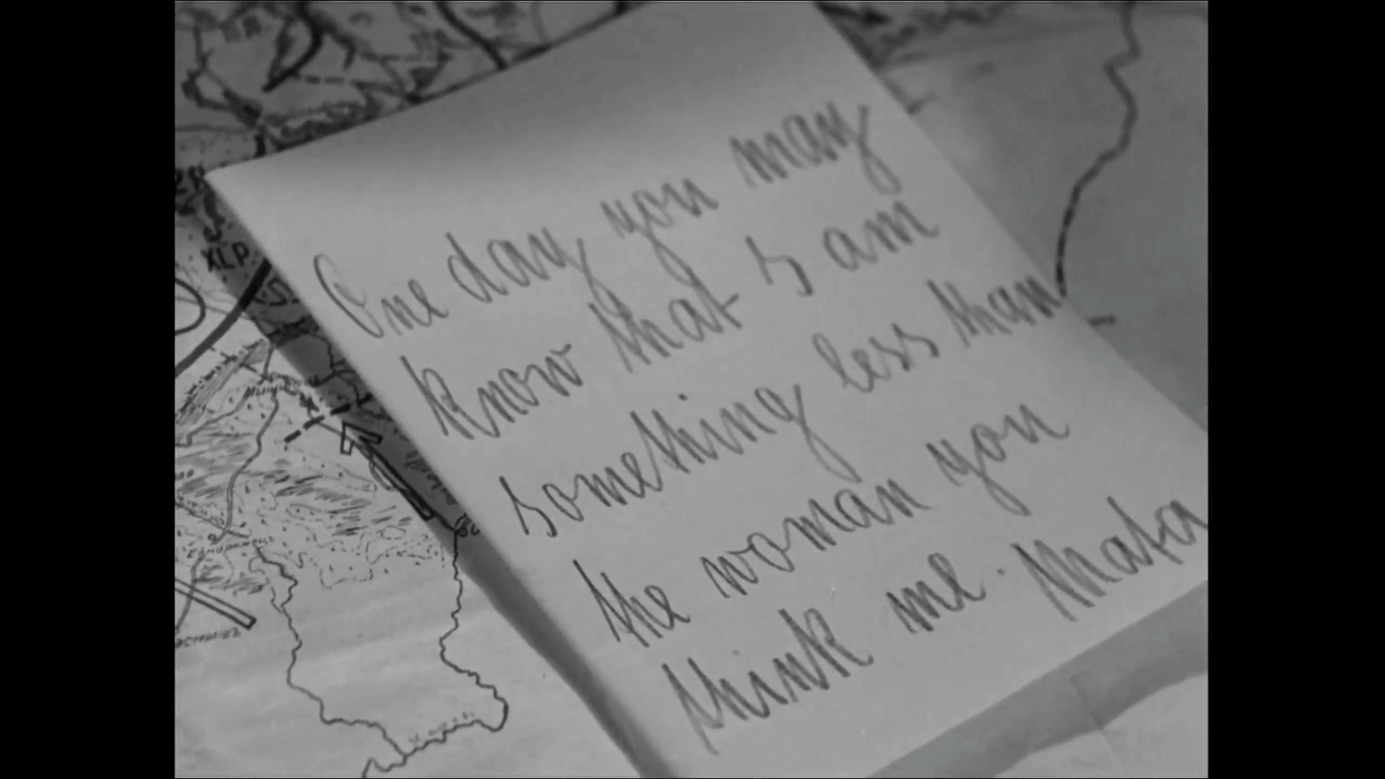 One day you may
know that I am
something less than
the woman you
think me. Mafa
XLP